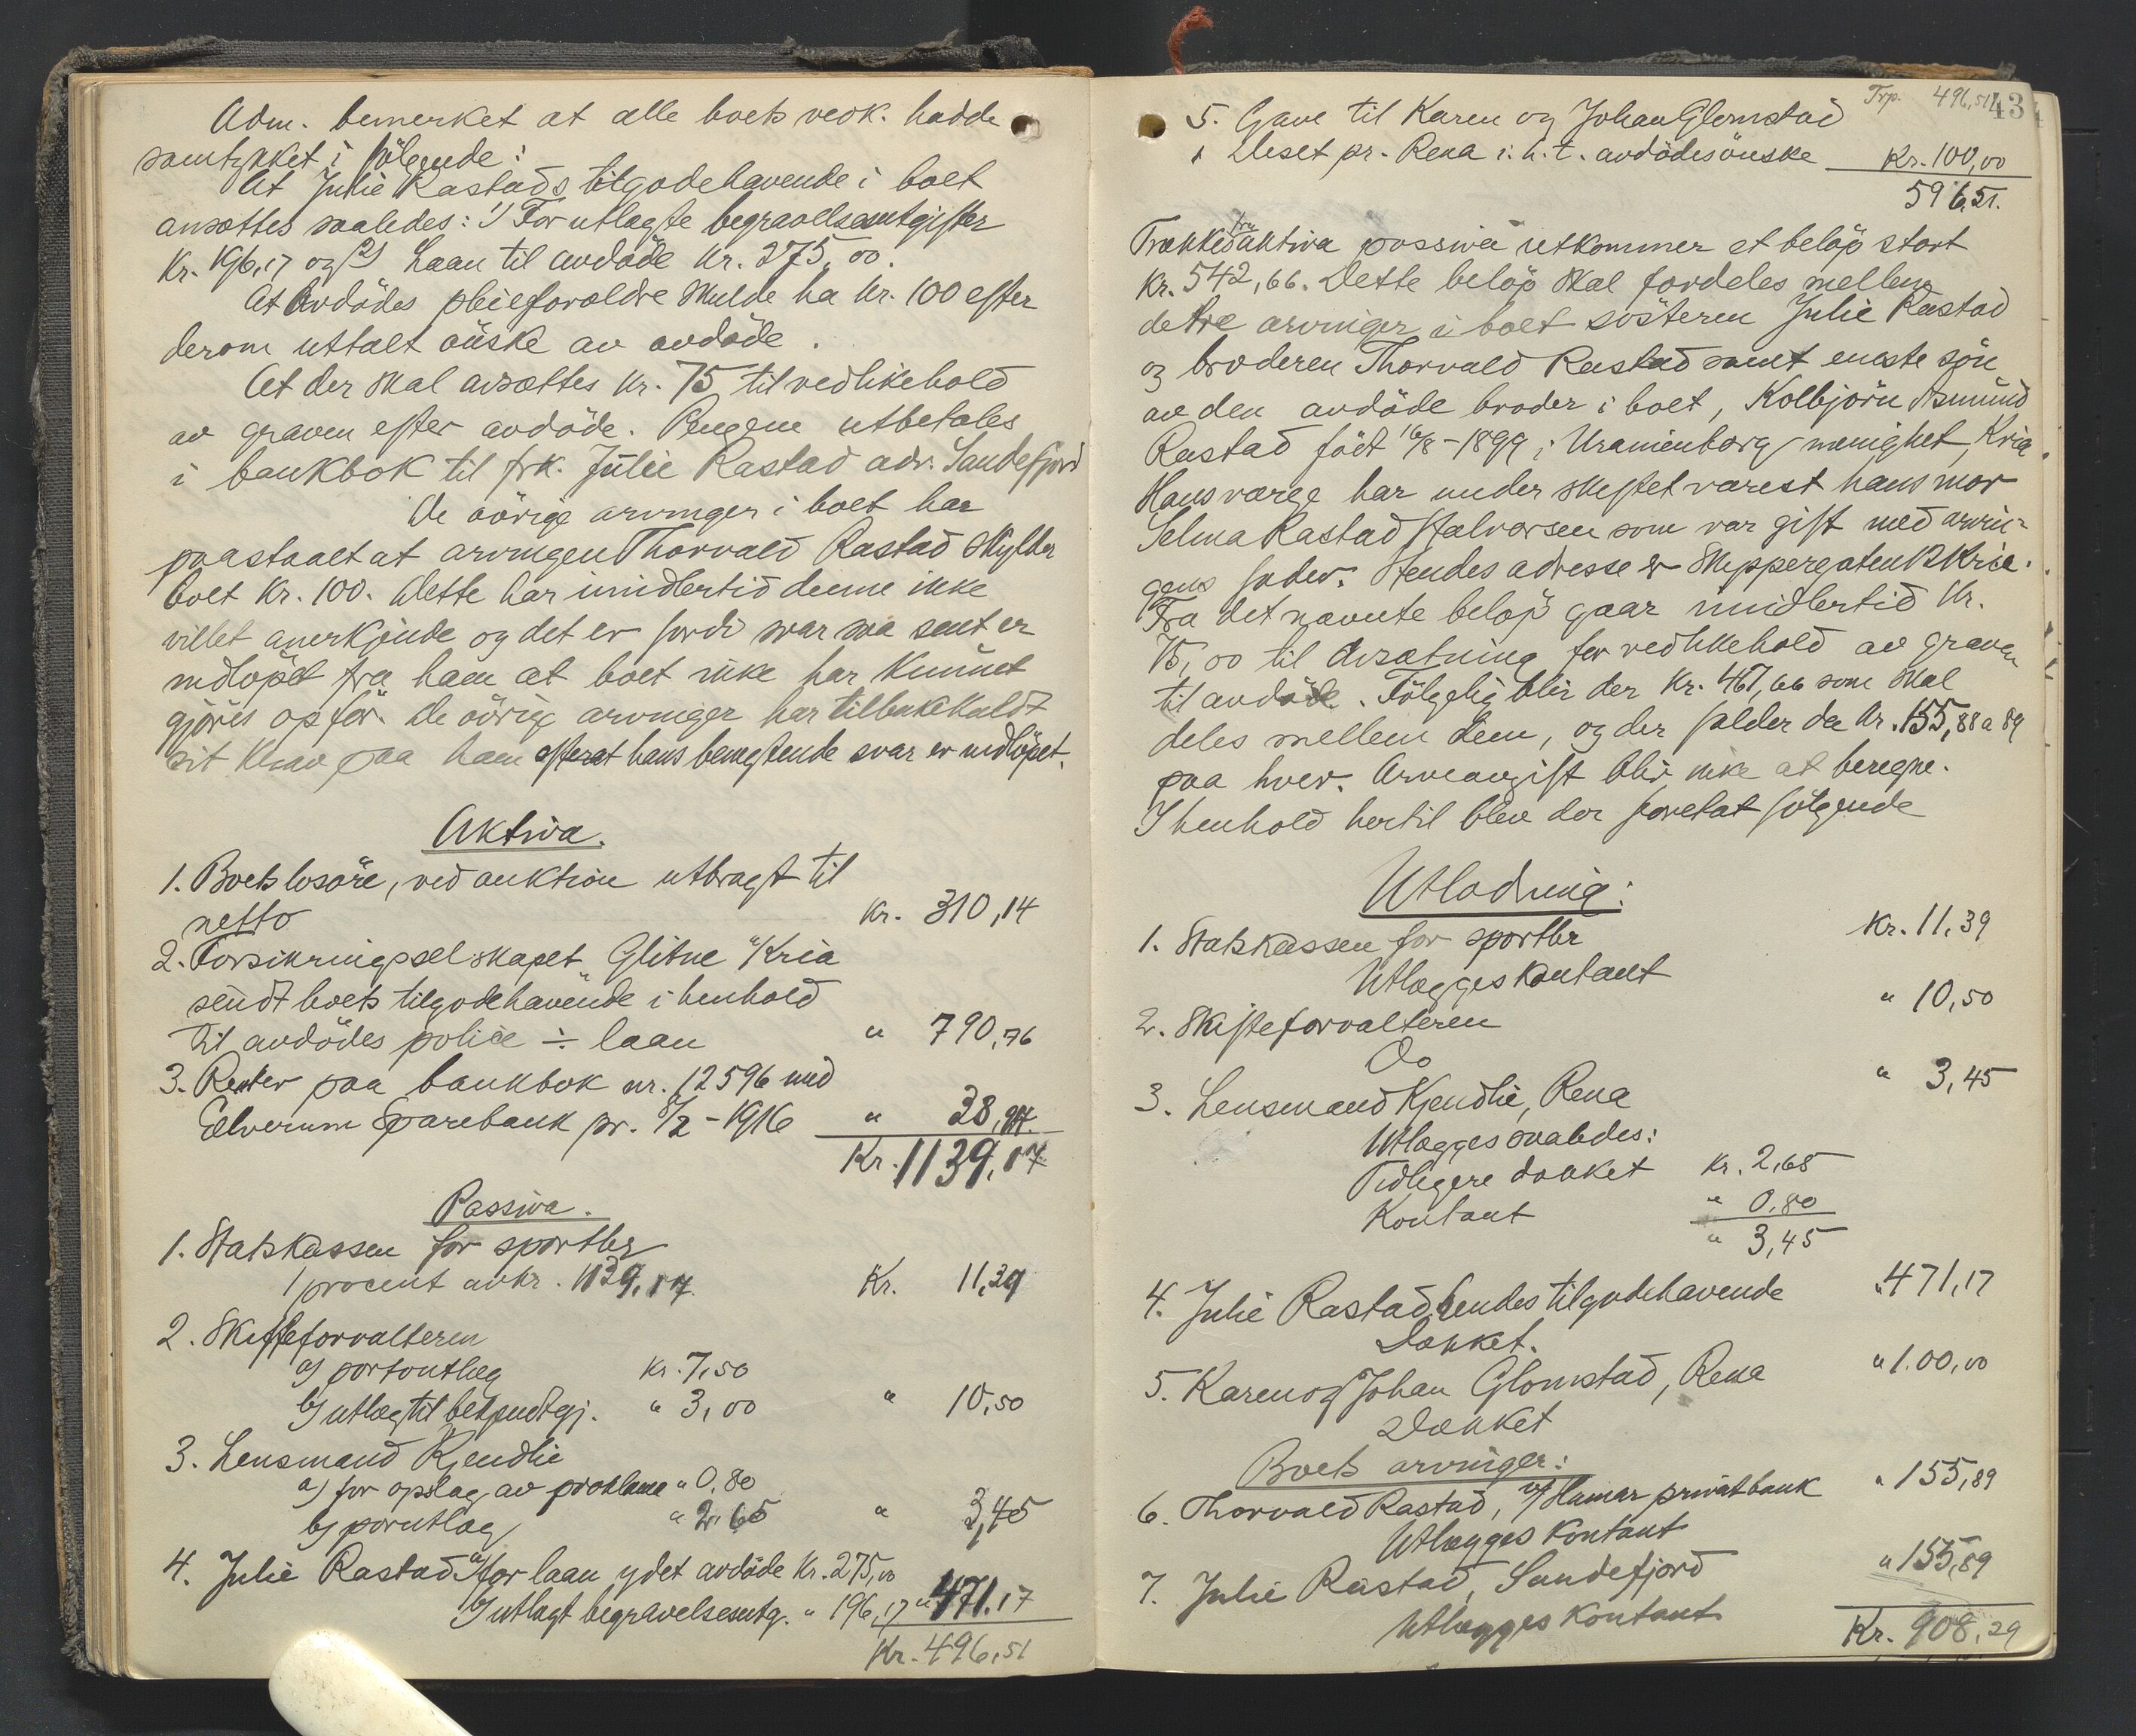 Adm. bemerket at alle boets vedk. hadde
samtykket i følgende:
At Julie Rastads tilgodehavende i boet
ansættes saaledes: 1) For utlagte begravelsesutgifter
Kr. 196,17 og 2) Laan til avdöde Kr. 275,00.
At Avdödes pleieforældre skulde ha kr. 100 efter
derom uttalt önske av avdöde.
At der skal avsættes kr. 75 til vedlikehold
av graven efter avdöde. Pengene utbetales
i bankbok til frk. Julie Rastad adr. Sandefjord
De övrige arvinger i boet har
paastaaet at arvingen Thorvald Rastad skylder
boet Kr. 100. Dette har imidlertid denne ikke
villet anerkjende og det er fordi svar saa sent er
indlöpet fra ham at boet ikke har kunnet
gjöres op för. De övrige arvinger har tilbakekaldt
sit krav paa ham efterat hans benegtende svar er indlöpet.
Aktiva.
1. Boets losöre, ved auktion utbragt til
netto Kr. 310,14
2. Forsikringsselskapet "Glitne" Kria
sendt boets tilgodehavende i henhold
til avdödes police ÷ laan " 790,76
3. Renter paa bankbok nr. 12596 med
Elverum Sparebank pr. 8/2-1916 " 38,27.
Kr. 1139,17
Passiva.
1. Statskassen for sportler
1 procent av kr. 1139,17. Kr. 11,39
2. Skifteforvalteren
a) portoutlæg Kr. 7,50
b) utlæg til bekjendtgj. " 3,00 " 10,50
3. Lensmand Kjendlie
a) for opslag av proklama " 0,80
b) portoutlæg " 2,65 " 3,45
4. Julie Rastad a) for laan ydet avdöde Kr. 275,00
b) utlagt begravelsesutg. " 196,17 " 471,17
Kr. 496,51
Trp. 496,51 43
5. Gave til Karen og Johan Glomstad
Deset pr. Rena i. h. t. avdödes önske Kr. 100,00
596,51.
Trækkes fra aktiva passiva utkommer et belöp stort
Kr. 542,66. Dette belöp skal fordeles mellem
de tre arvinger i boet söstern Julie Rastad
og broderen Thorvald Rastad samt eneste sön
av den avdöde broder i boet, Kolbjörn Asmund
Rastad födt 16/8-1899 i Uranienborg menighet, Kria.
Hans værge har under skiftet været hans mor
Selma Rastad Halvorsen som var gift med arvin-
gens fader. Hendes adresse er Skippergaten 13 Kria.
Fra det nævnte belöp gaar imidlertid kr.
75,00 til avsætning for vedlikehold av graven
til avdöde. Fölgelig blir der Kr. 467,66 som skal
deles mellem dem, og der falder da kr. 155,88 a 89
paa hver. Arveavgift blir ikke at beregne.
I henhold hertil blev der foretat fölgende
Utlodning:
1. Statskassen for sportler Kr. 11,39
Utlægges kontant
2. Skifteforvalteren " 10,50
Do
3. Lensmand Kjendlie, Rena " 3,45
Utlægges saaledes:
Tidligere dækket Kr. 2,65
Kontant " 0,80
" 3,45
4. Julie Rastad, hendes tilgodehavende " 471,17
Dækket.
5. Karen og Johan Glomstad, Rena " 100,00
Dækket
Boets arvinger:
6. Thorvald Rastad, v/ Hamar privatbank " 155,89
Utlægges kontant
7. Julie Rastad, Sandefjord " 155,89
Utlægges kontant
Kr. 908,29